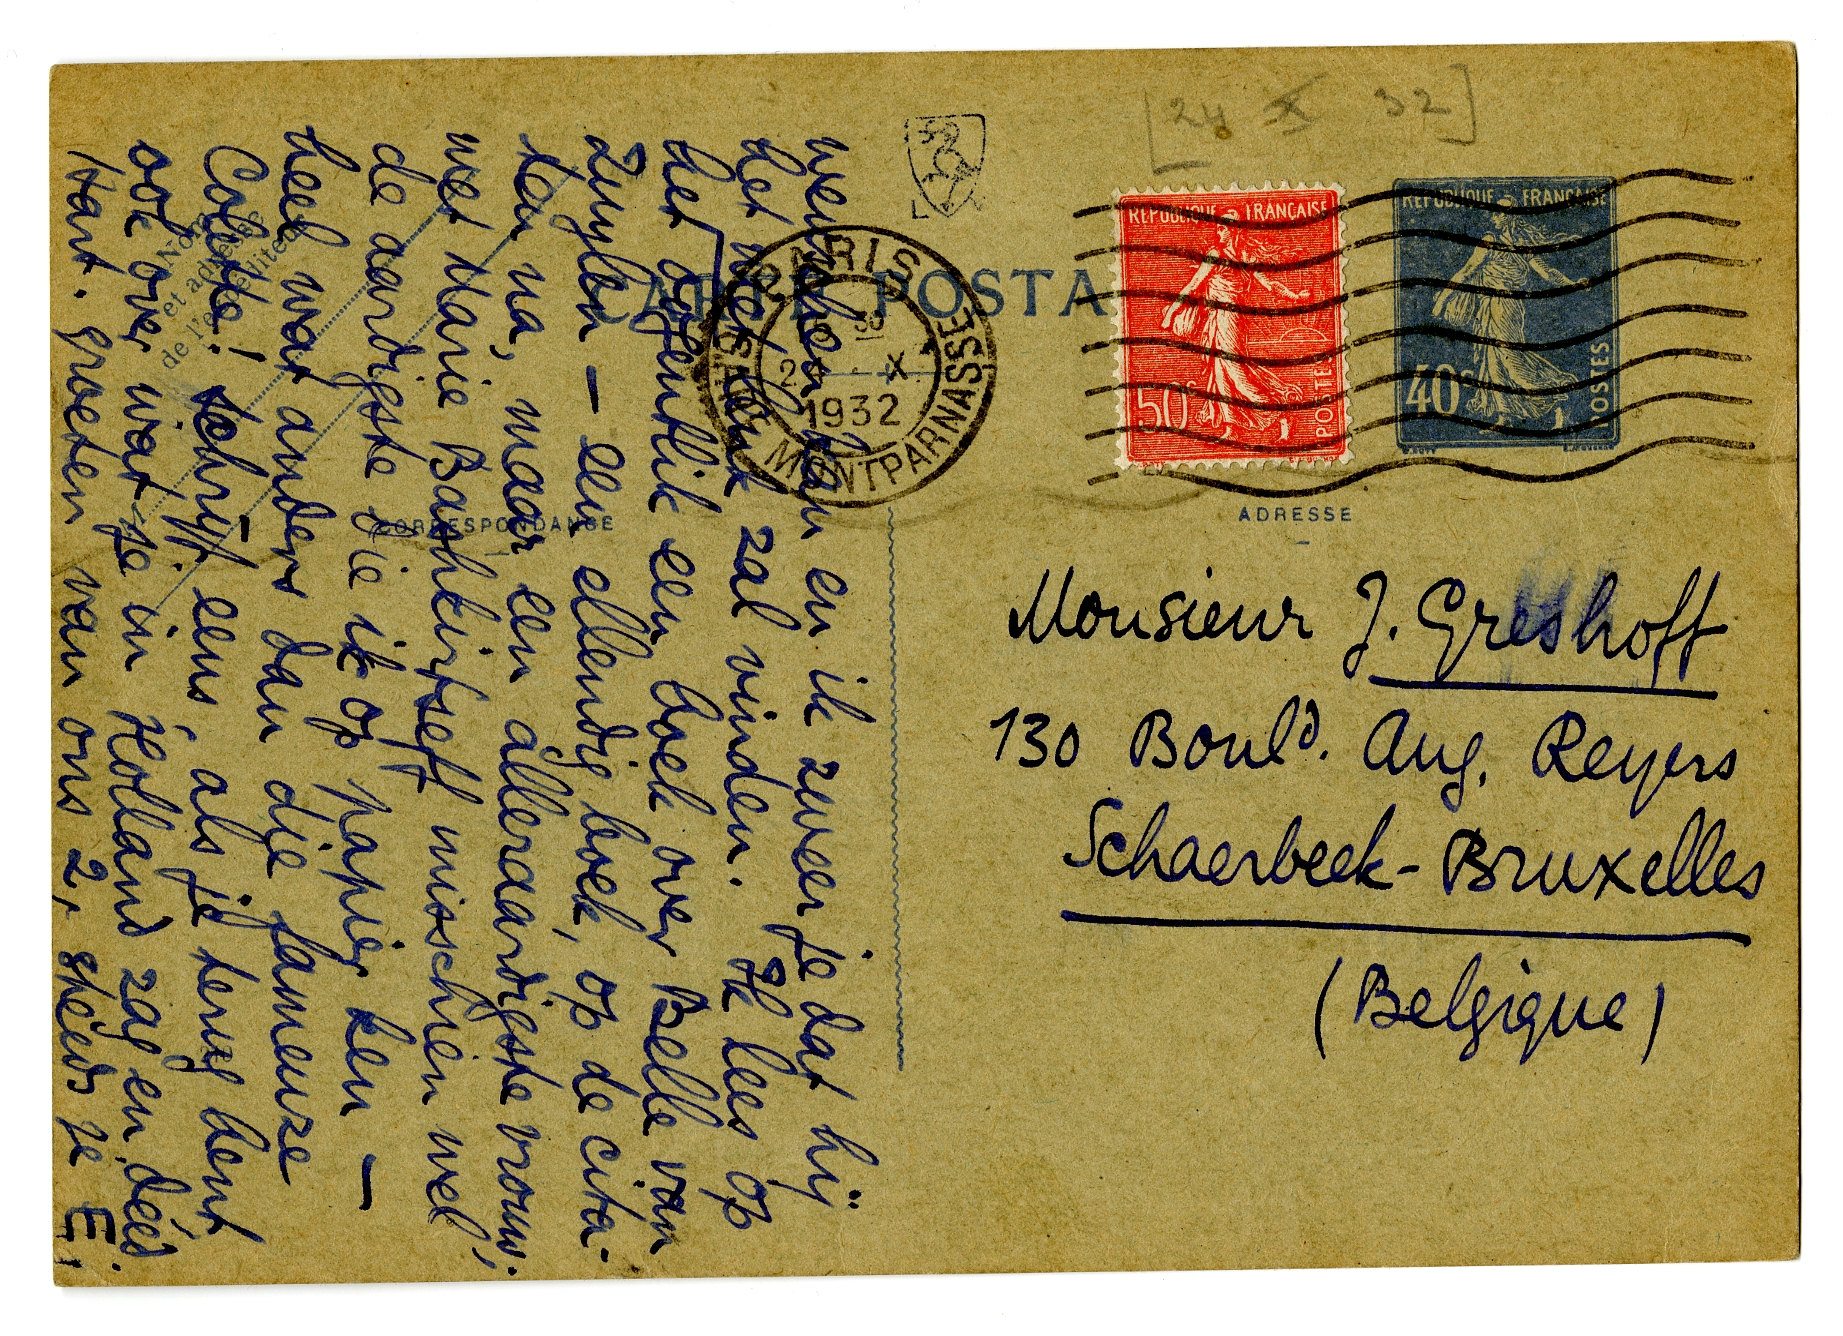 [24 X 32]
CARTE POSTALE
RÉPUBLIQUE FRANÇAISE
50c
POSTES
RÉPUBLIQUE FRANÇAISE
40c
POSTES
PARIS
30
24 - X
1932
MONTPARNASSE
CORRESPONDANCE
ADRESSE
Nom
et adresse
de l'editeur
Monsieur J. Greshoff
130 Bould. Aug. Reyers
Schaerbeek-Bruxelles
(Belgique)
en ik zweer je dat hij
het ook leuk zal vinden. Ik lees op
het oogenblik een boek over Belle van
Zuylen — een ellendig boek, op de cita-
ten na, maar een alleraardigste vrouw,
met Marie Bashkirtseff misschien wel
de aardigste die ik op papier ken —
heel wat anders dan die fameuze
Colette! Schrijf eens, als je terug bent
ook over wat je in Holland zag en deed.
Hart. groeten van ons 2, steeds je E.